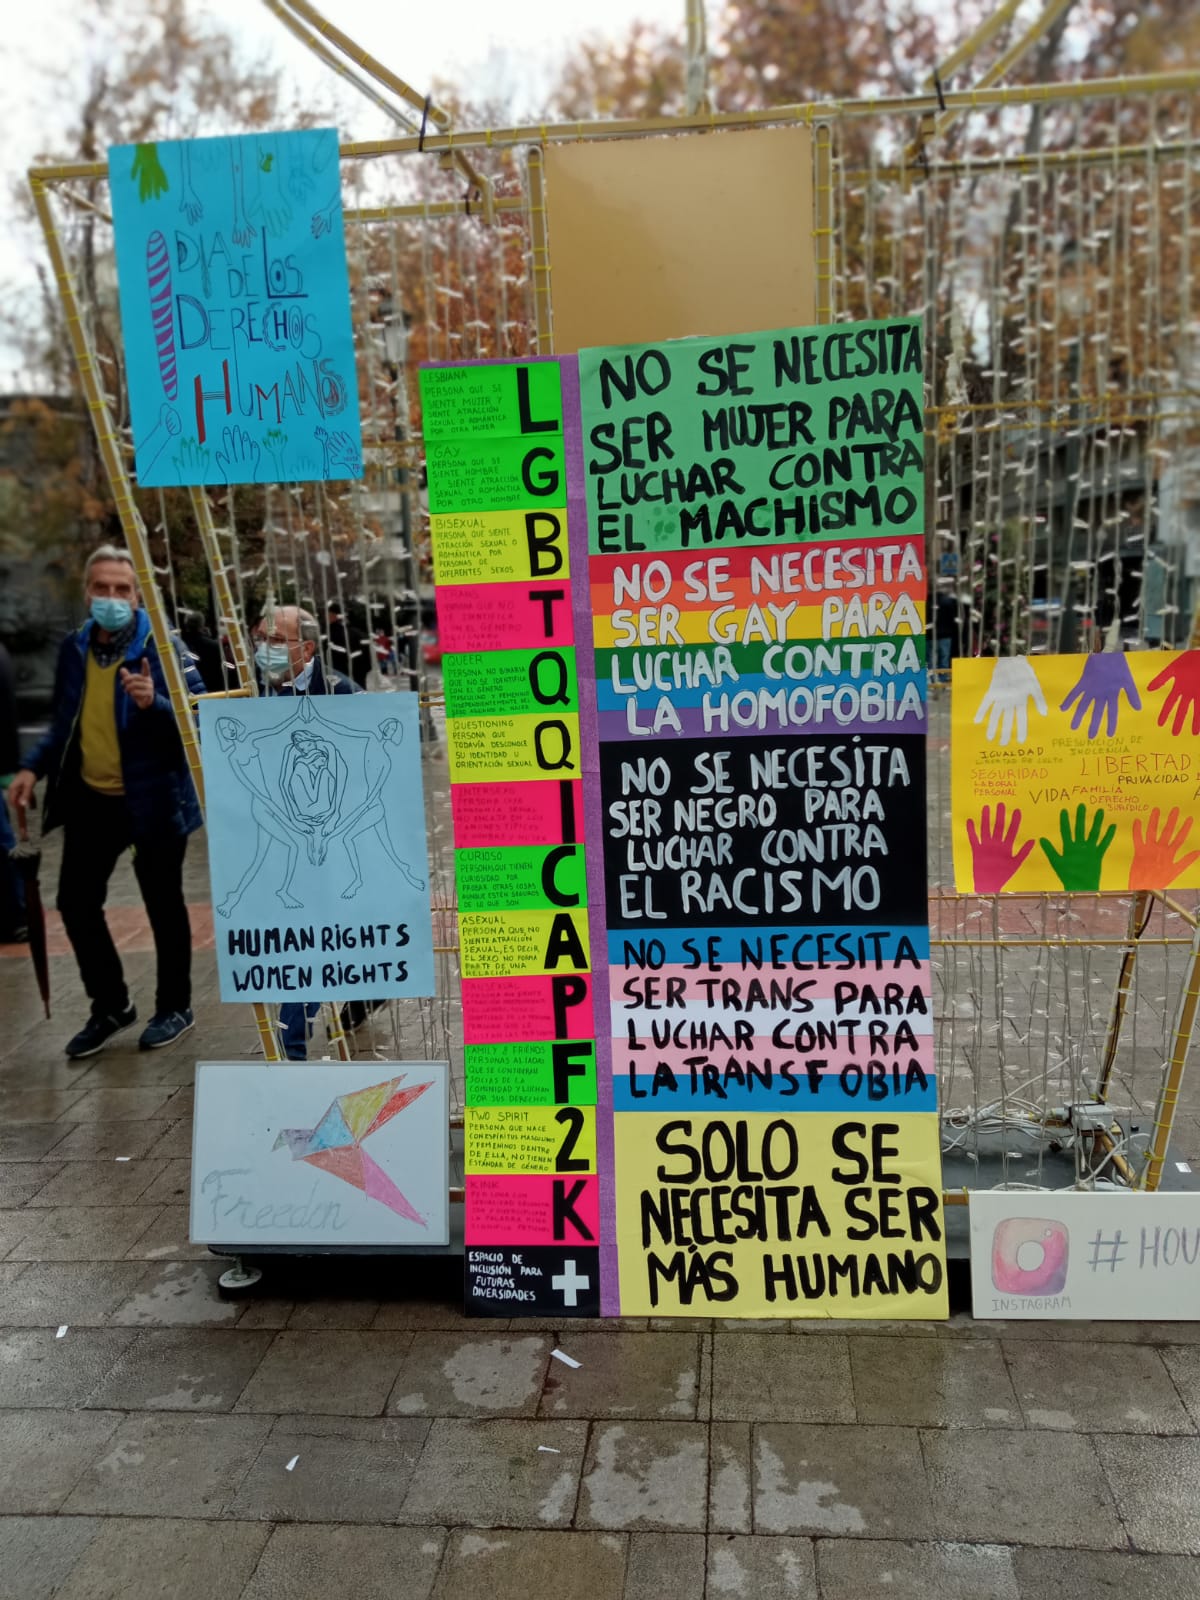 DIA
DE LOS
DERECHOS
HUMANOS
LESBIANA
PERSONA QUE SE
SIENTE MUJER Y
SIENTE ATRACCIÓN
SEXUAL O ROMÁNTICA
POR OTRA MUJER
L
GAY
PERSONA QUE SE
SIENTE HOMBRE
Y SIENTE ATRACCIÓN
SEXUAL O ROMÁNTICA
POR OTRO HOMBRE
G
BISEXUAL
PERSONA QUE SIENTE
ATRACCIÓN SEXUAL O
ROMÁNTICA POR
PERSONAS DE
DIFERENTES SEXOS
B
TRANS
PERSONA QUE NO
SE IDENTIFICA
CON EL GÉNERO
AL NACER
T
QUEER
PERSONA NO BINARIA
QUE NO SE IDENTIFICA
CON EL GÉNERO
MASCULINO Y FEMENINO
INDEPENDIENTEMENTE DEL
SEXO ASIGNADO AL NACER
Q
QUESTIONING
PERSONA QUE
TODAVÍA DESCONOCE
SU IDENTIDAD U
ORIENTACIÓN SEXUAL
Q
INTERSEXO
PERSONA CUYA
ANATOMÍA SEXUAL
NO ENCAJA EN LOS
CÁNONES TÍPICOS
DE HOMBRE Y MUJER
I
CURIOSO
PERSONAS QUE TIENEN
CURIOSIDAD POR
PROBAR OTRAS COSAS
AUNQUE ESTÉN SEGUROS
DE LO QUE SON
C
ASEXUAL
PERSONA QUE NO
SIENTE ATRACCIÓN
SEXUAL, ES DECIR
EL SEXO NO FORMA
PARTE DE UNA
RELACIÓN
A
PANSEXUAL
PERSONA QUE SIENTE
ATRACCIÓN INDEPENDIENTE
P
FAMILY & FRIENDS
PERSONAS ALIADAS
QUE SE CONSIDERAN
SOCIAS DE LA
COMUNIDAD Y LUCHAN
POR SUS DERECHOS
F
TWO SPIRIT
PERSONA QUE NACE
CON ESPÍRITUS MASCULINOS
Y FEMENINOS DENTRO
DE ELLA, NO TIENEN
ESTÁNDAR DE GÉNERO
2
KINK
PERSONA CON
SEXUALIDAD
LA PALABRA KINK
SIGNIFICA FETICHE
K
ESPACIO DE
INCLUSIÓN PARA
FUTURAS
DIVERSIDADES
+
NO SE NECESITA
SER MUJER PARA
LUCHAR CONTRA
EL MACHISMO
NO SE NECESITA
SER GAY PARA
LUCHAR CONTRA
LA HOMOFOBIA
NO SE NECESITA
SER NEGRO PARA
LUCHAR CONTRA
EL RACISMO
NO SE NECESITA
SER TRANS PARA
LUCHAR CONTRA
LA TRANSFOBIA
SOLO SE
NECESITA SER
MÁS HUMANO
HUMAN RIGHTS
WOMEN RIGHTS
Freedon
IGUALDAD
LIBERTAD DE CULTO
PRESUNCIÓN DE
INOCENCIA
SEGURIDAD
LABORAL
PERSONAL
LIBERTAD
PRIVACIDAD
VIDA
FAMILIA
DERECHO
JURÍDICO
INSTAGRAM
# HOU